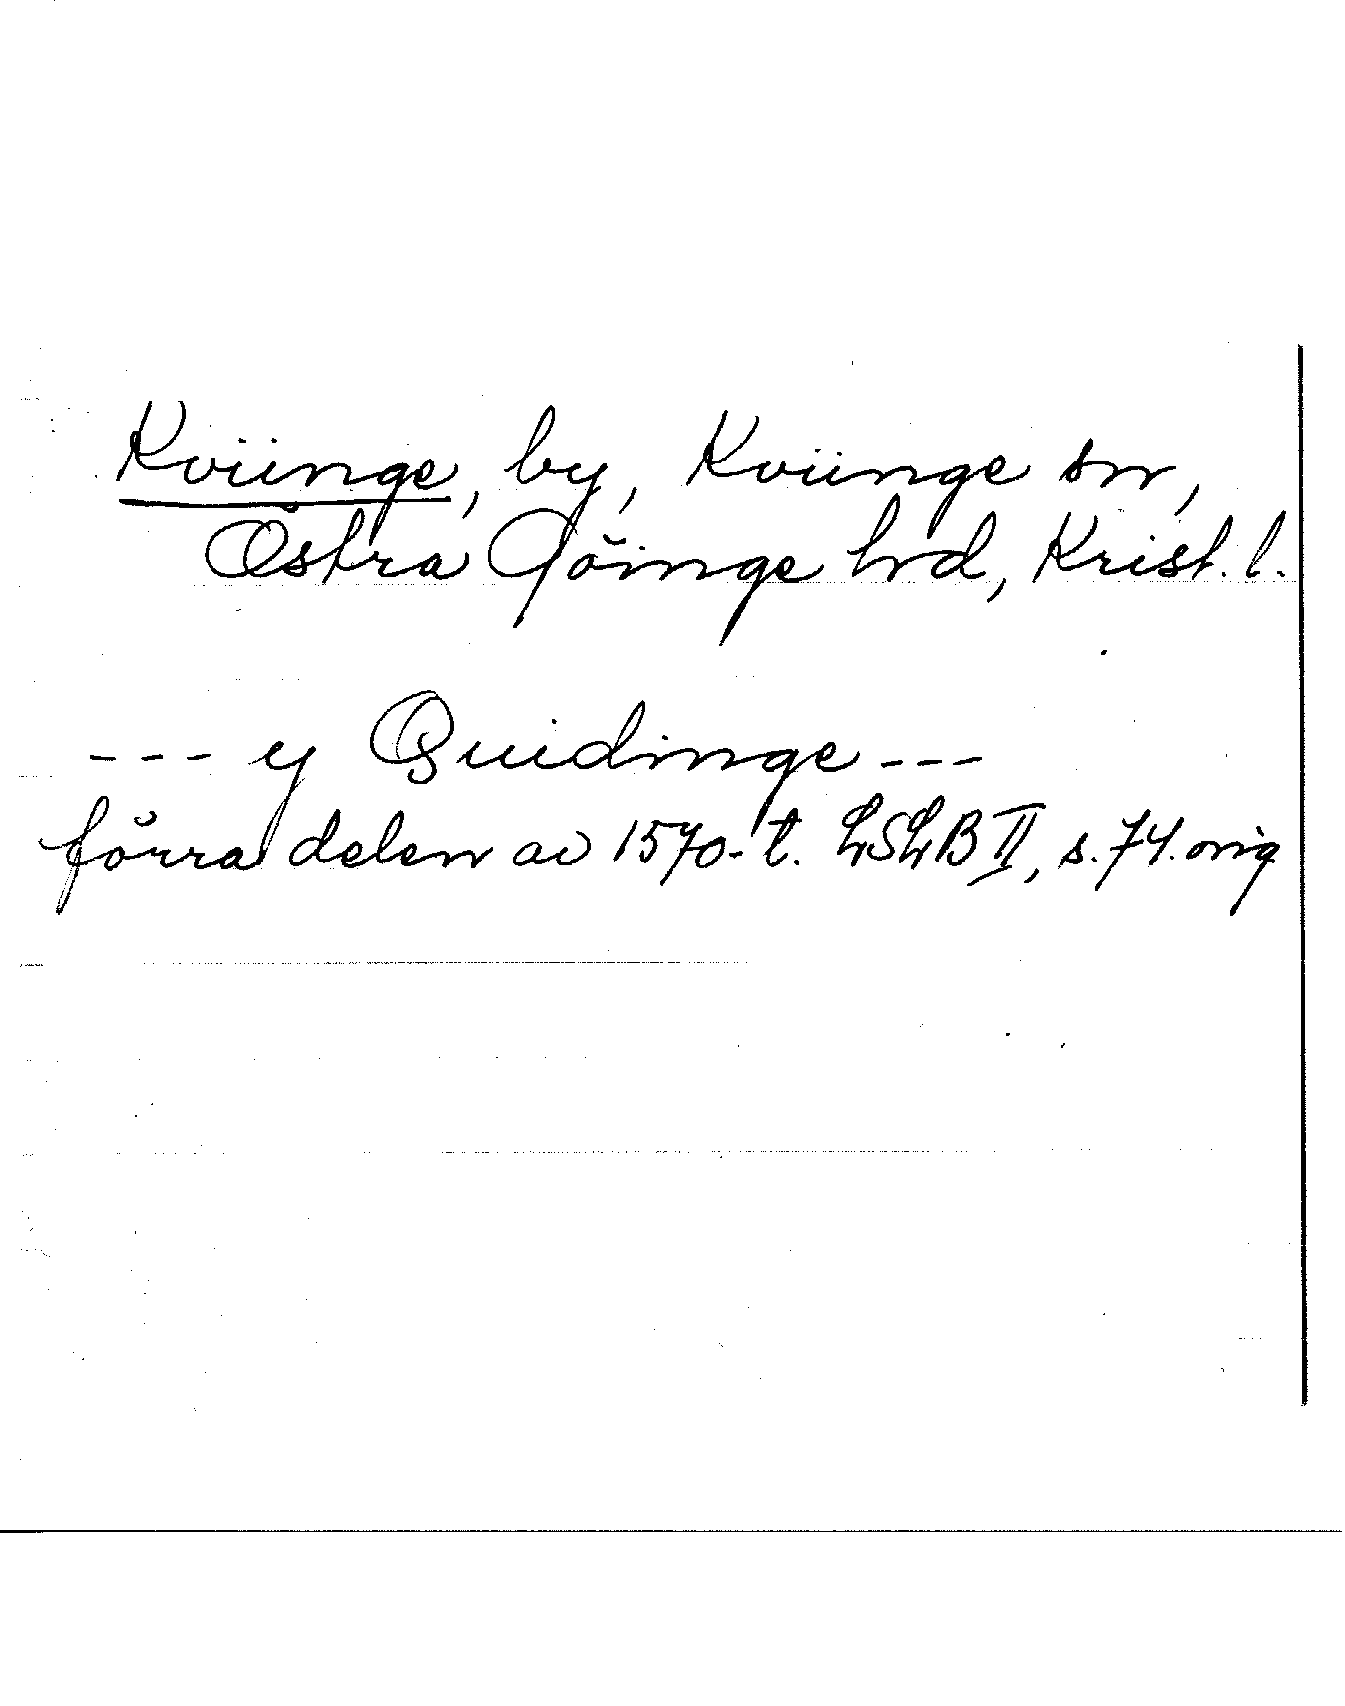 Kviinge, by, Kviinge sn,
Östra Göinge hd, Krist. l.
--- y Quidinge ---
förra delen av 1570-t. LSLB II, s. 74. orig